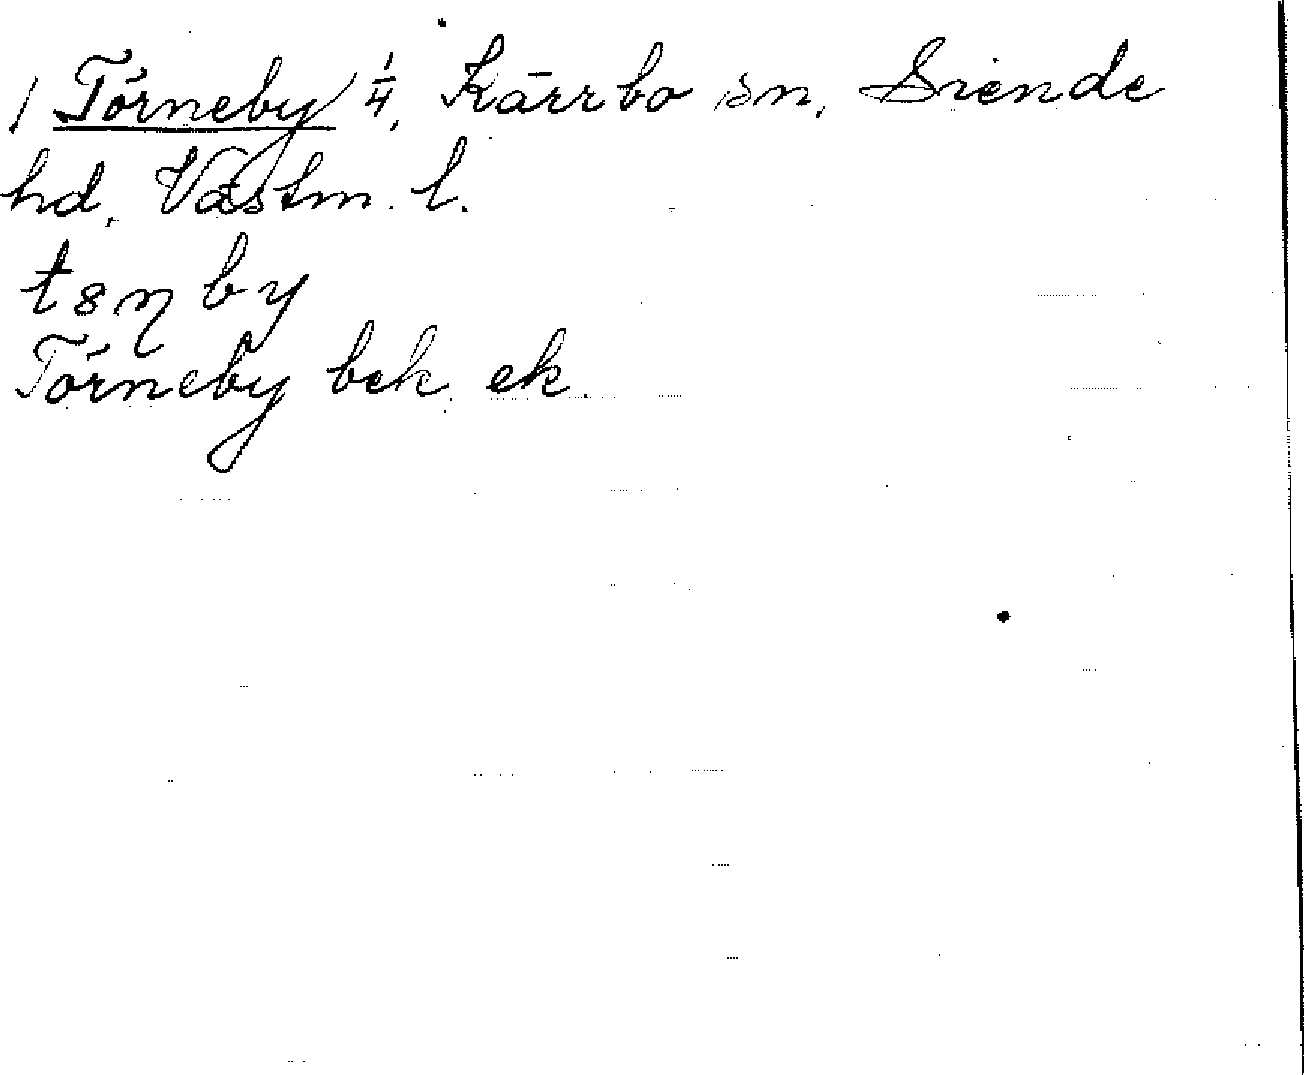 1 Törneby 1/4, Kärrbo sn, Siende
hd, Västm. l.
tɜɳby
Törneby bek. ek.